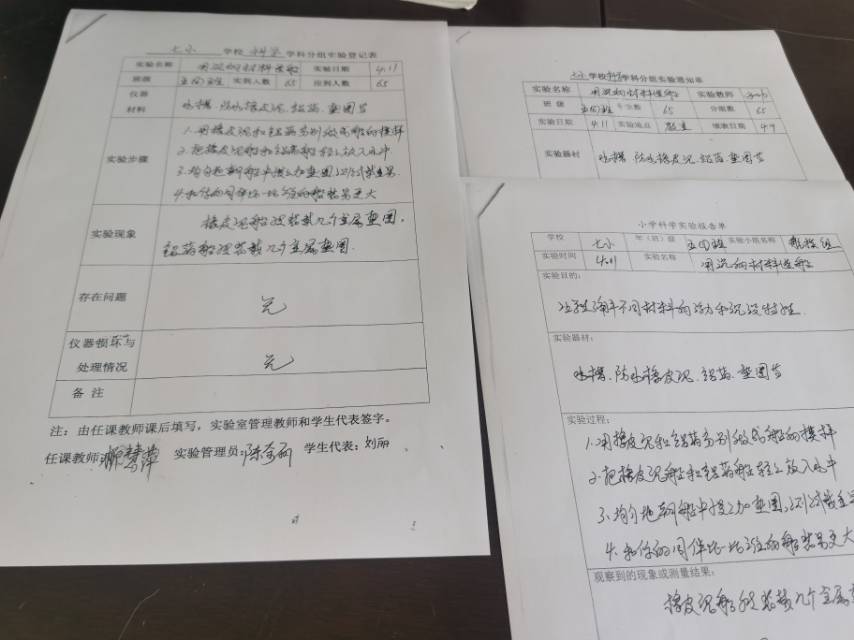 七小 学校 科学 学科分组实验登记表
实验名称 用沉的材料造船 实验日期 4.11
班级 五四班 实到人数 65 应到人数 65
仪器
材料
水槽、防水橡皮泥、铝箔、垫圈等
实验步骤
1.用橡皮泥和铝箔分别做成船的模样
2.把橡皮泥船和铝箔船轻轻放入水中
3.均匀地朝船中加垫圈,测试载重量
4.和你的同伴比一比谁的船装载更大
实验现象
橡皮泥船没装载几个金属垫圈,
铝箔船没装载几个金属垫圈.
存在问题
无
仪器损坏与
处理情况
无
备 注
注:由任课教师课后填写,实验室管理教师和学生代表签字。
任课教师: 实验管理员: 学生代表:刘丽
七小 学校 科学 学科分组实验通知单
实验名称 用沉的材料造船 实验教师
班 级 五四班 学生数 65 分组数 65
实验日期 4.11 实验地点 教室 填表日期 4.9
实验器材
水槽、防水橡皮泥、铝箔、垫圈等
小学科学实验报告单
学校 七小 年(班)级 五四班 实验小组名称
实验时间 4.11 实验名称 用沉的材料造船
实验目的:
不同材料的浮力和沉没特性.
实验器材:
水槽、防水橡皮泥、铝箔、垫圈等
实验过程:
1.用橡皮泥和铝箔分别做成船的模样
2.把橡皮泥船和铝箔船轻轻放入水中
3.均匀地朝船中加垫圈,测试载重量
4.和你的同伴比一比谁的船装载更大
观察到的现象或测量结果:
橡皮泥船没装载几个金属